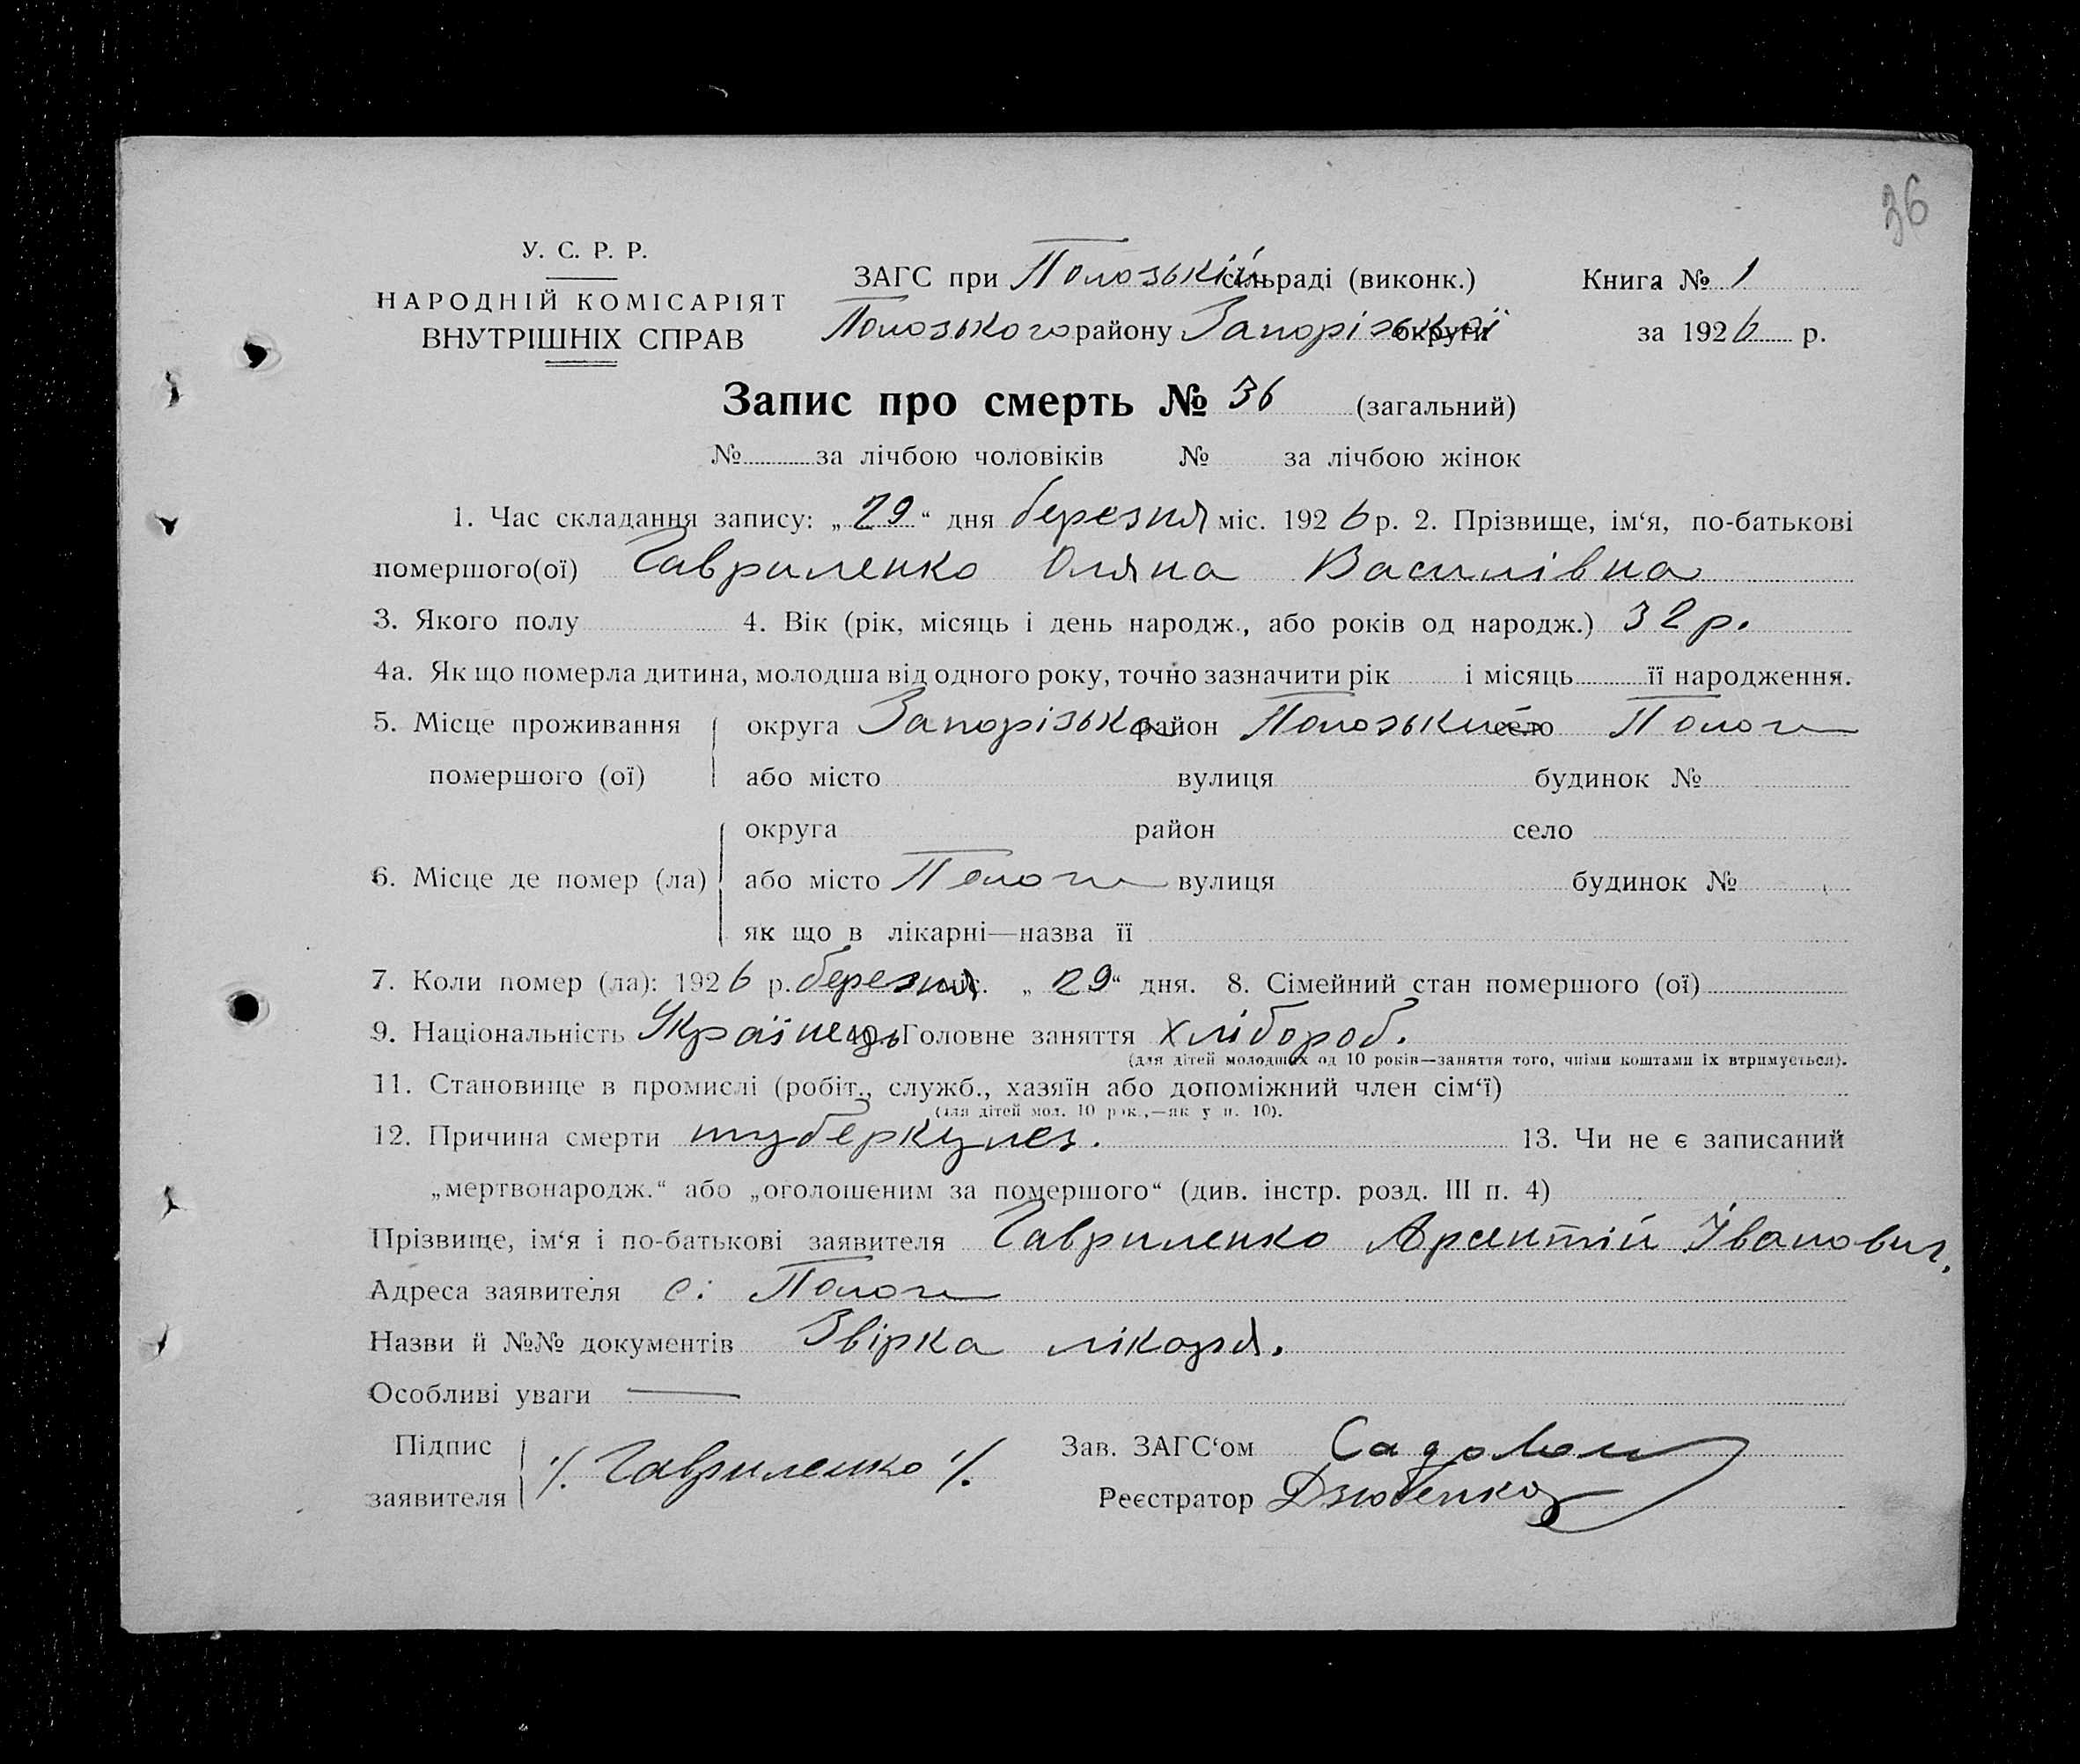 36
У. С. Р. Р.
НАРОДНІЙ КОМІСАРІЯТ
ВНУТРІШНІХ СПРАВ
ЗАГС при Пологській сільраді (виконк.) Книга № 1
Пологського району Запорізької округи за 1926 р.
Запис про смерть № 36 (загальний)
№ за лічбою чоловіків № за лічбою жінок
1. Час складання запису: „29“ дня березня міс. 1926 р. 2. Прізвище, ім‘я, по-батькові
помершого(ої) Гавриленко Оляна Василівна
3. Якого полу 4. Вік (рік, місяць і день народж., або років од народж.) 32 р.
4а. Як що померла дитина, молодша від одного року, точно зазначити рік і місяць її народження.
5. Місце проживання округа Запорізька район Пологський село Пологи
помершого (ої) або місто вулиця будинок №
округа район село
6. Місце де помер (ла) або місто Пологи вулиця будинок №
як що в лікарні—назва її
7. Коли помер (ла): 1926 р. березня міс. „29“ дня. 8. Сімейний стан помершого (ої)
9. Національність Українець 10. Головне заняття хлібороб.
(для дітей молодших од 10 років—заняття того, чиїми коштами їх втримується).
11. Становище в промислі (робіт., служб., хазяїн або допоміжний член сім‘ї)
(для дітей мол. 10 рок.,—як у п. 10).
12. Причина смерти туберкулез. 13. Чи не є записаний
„мертвонародж.“ або „оголошеним за помершого“ (див. інстр. розд. III п. 4)
Прізвище, ім‘я і по-батькові заявителя Гавриленко Арентій Іванович,
Адреса заявителя с. Пологи
Назви й №№ документів Звірка лікаря.
Особливі уваги —
Підпис заявителя /. Гавриленко /.
Зав. ЗАГС‘ом
Реєстратор Дзюбенко